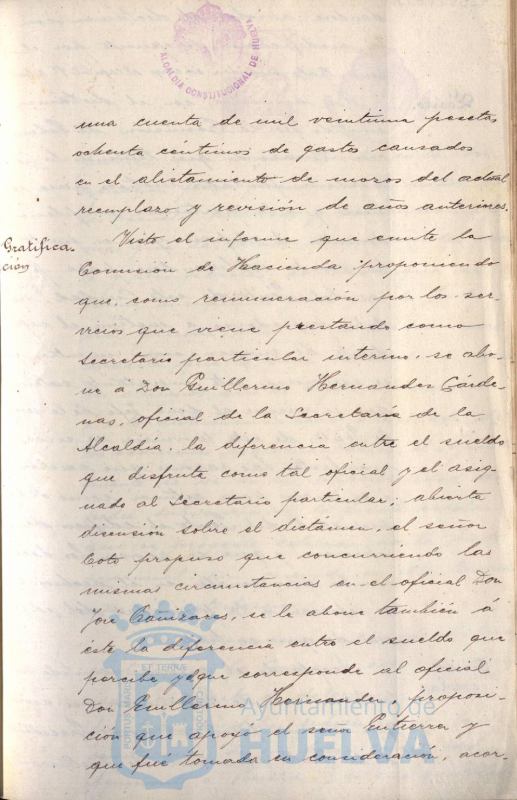 ALCALDIA CONSTITUCIONAL DE HUELVA
una cuenta de mil veintiuna pesetas
ochenta céntimos de gastos causados
en el alistamiento de mozos del actual
reemplazo y revisión de años anteriores.
Gratifica-
ción
Visto el informe que emite la
Comisión de Hacienda proponiendo
que, como remuneración por los ser-
vicios que viene prestando como
Secretario particular interino, se abo-
ne á Don Guillermo Hernandez Cárde-
nas, oficial de la Secretaría de la
Alcaldía, la diferencia entre el sueldo
que disfruta como tal oficial y el asig-
nado al Secretario particular; abierta
discusión sobre el dictámen, el señor
Coto propuso que concurriendo las
mismas circunstancias en el oficial Don
José Cañizares, se le abone también á
éste la diferencia entre el sueldo que
percibe y el que corresponde al oficial
Don Guillermo Hernandez, proposi-
ción que apoyó el señor Gutierrez y
que fue tomada en consideración, acor-
PORTUS MARIS ET TERRAE CUSTODIA
Ayuntamiento de
HUELVA